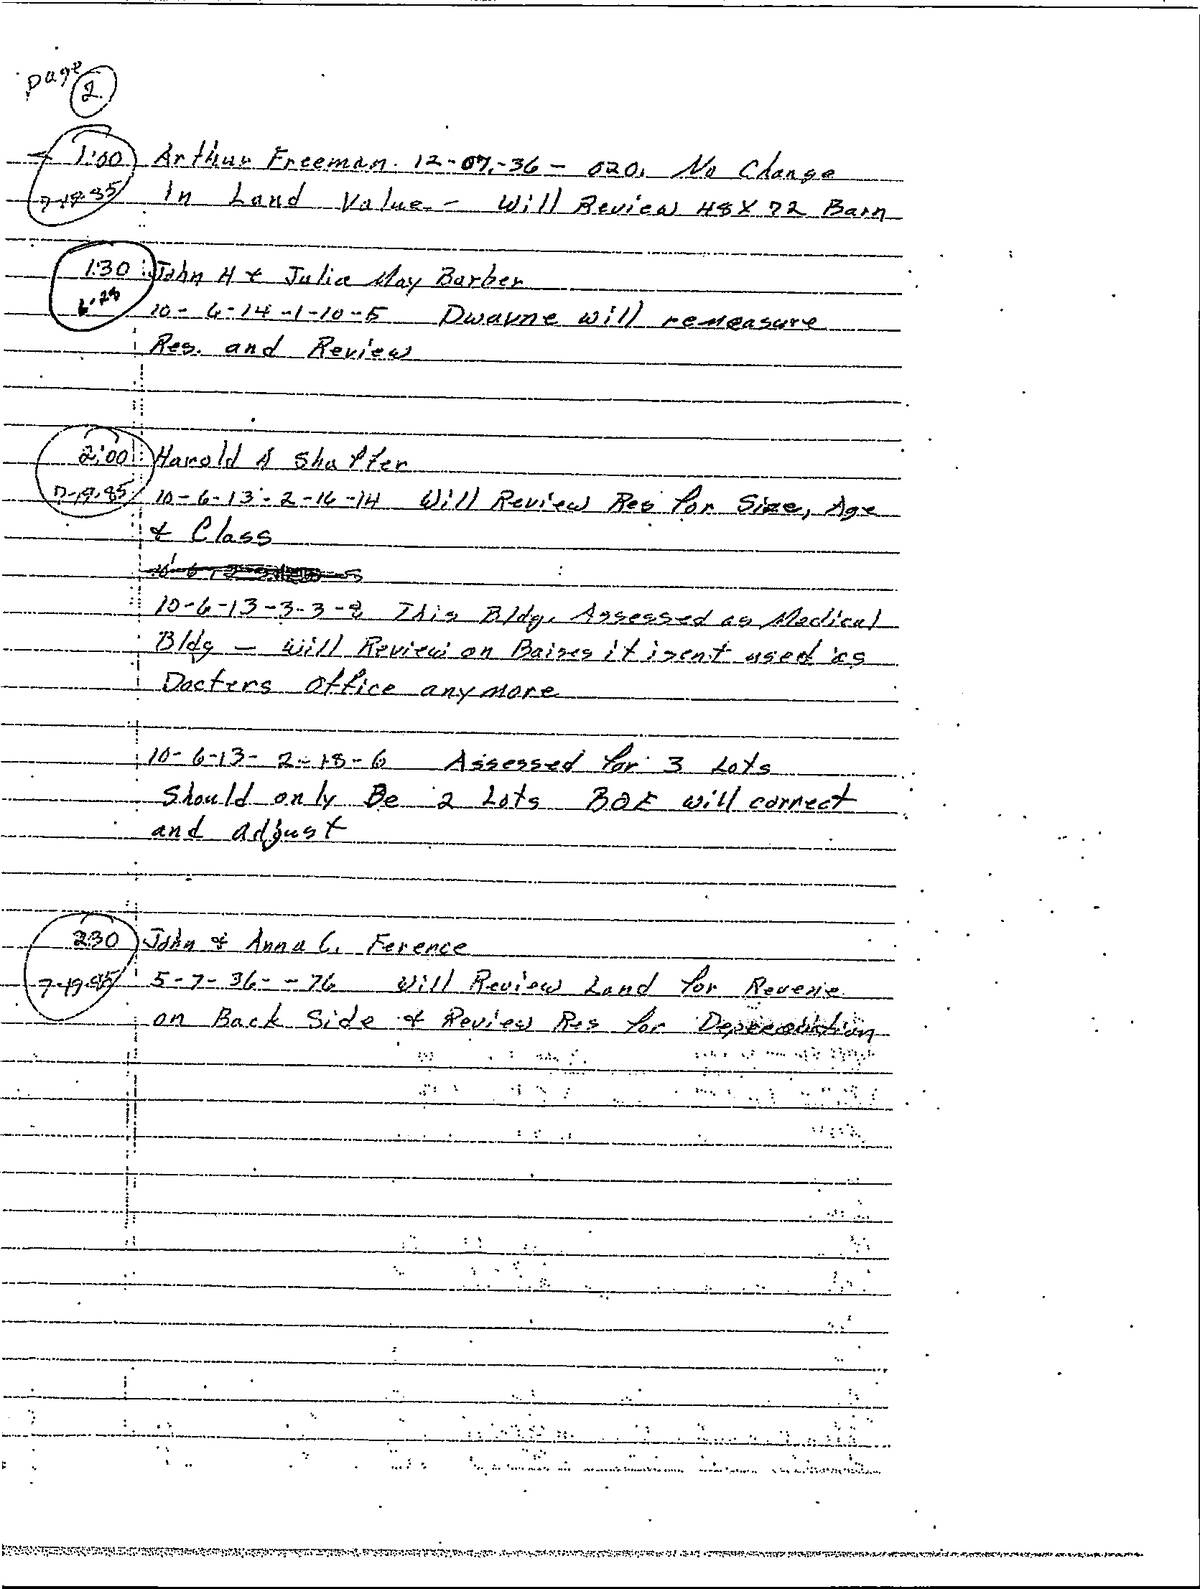 page 2
1:00 Arthur Freeman. 12-07-36- 020. No Change
7-19-85 In Land Value - Will Review 48 X 72 Barn
1:30 John H & Julia May Barber
10-6-14-1-10-5 Dwayne will remeasure
Res. and Review
2:00 Harold A Shaffer
7-19-85 10-6-13-2-16-14 Will Review Res for Size, Age
& Class
10-6-13-3-3-8 This Bldg. Assessed as Medical
Bldg - Will Review on Baises it isent used as
Docters Office anymore
10-6-13-2-18-6 Assessed for 3 Lots
Should only Be 2 Lots BOE will correct
and adjust
2:30 John & Anna C. Ference
7-19-85 5-7-36--76 Will Review Land for Revene
on Back Side & Review Res for Depreciation